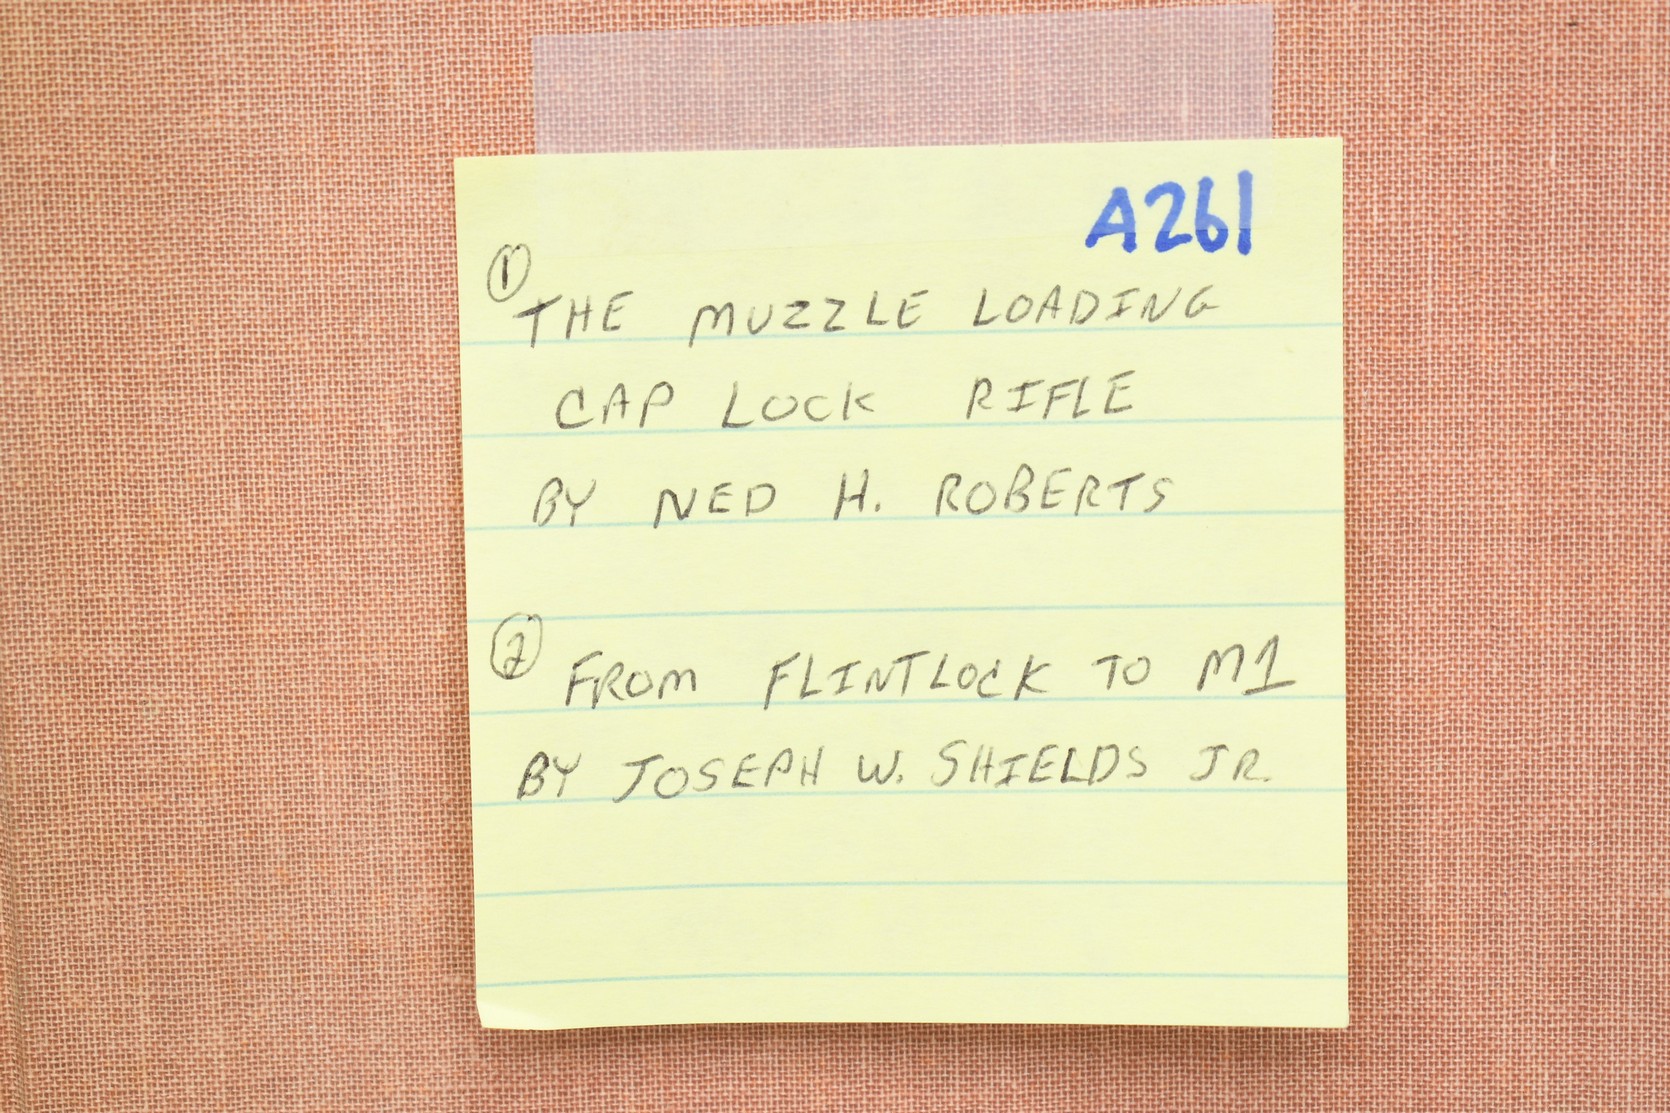 A261
①
THE MUZZLE LOADING
CAP LOCK RIFLE
BY NED H. ROBERTS
②
FROM FLINTLOCK TO M1
BY JOSEPH W. SHIELDS JR.